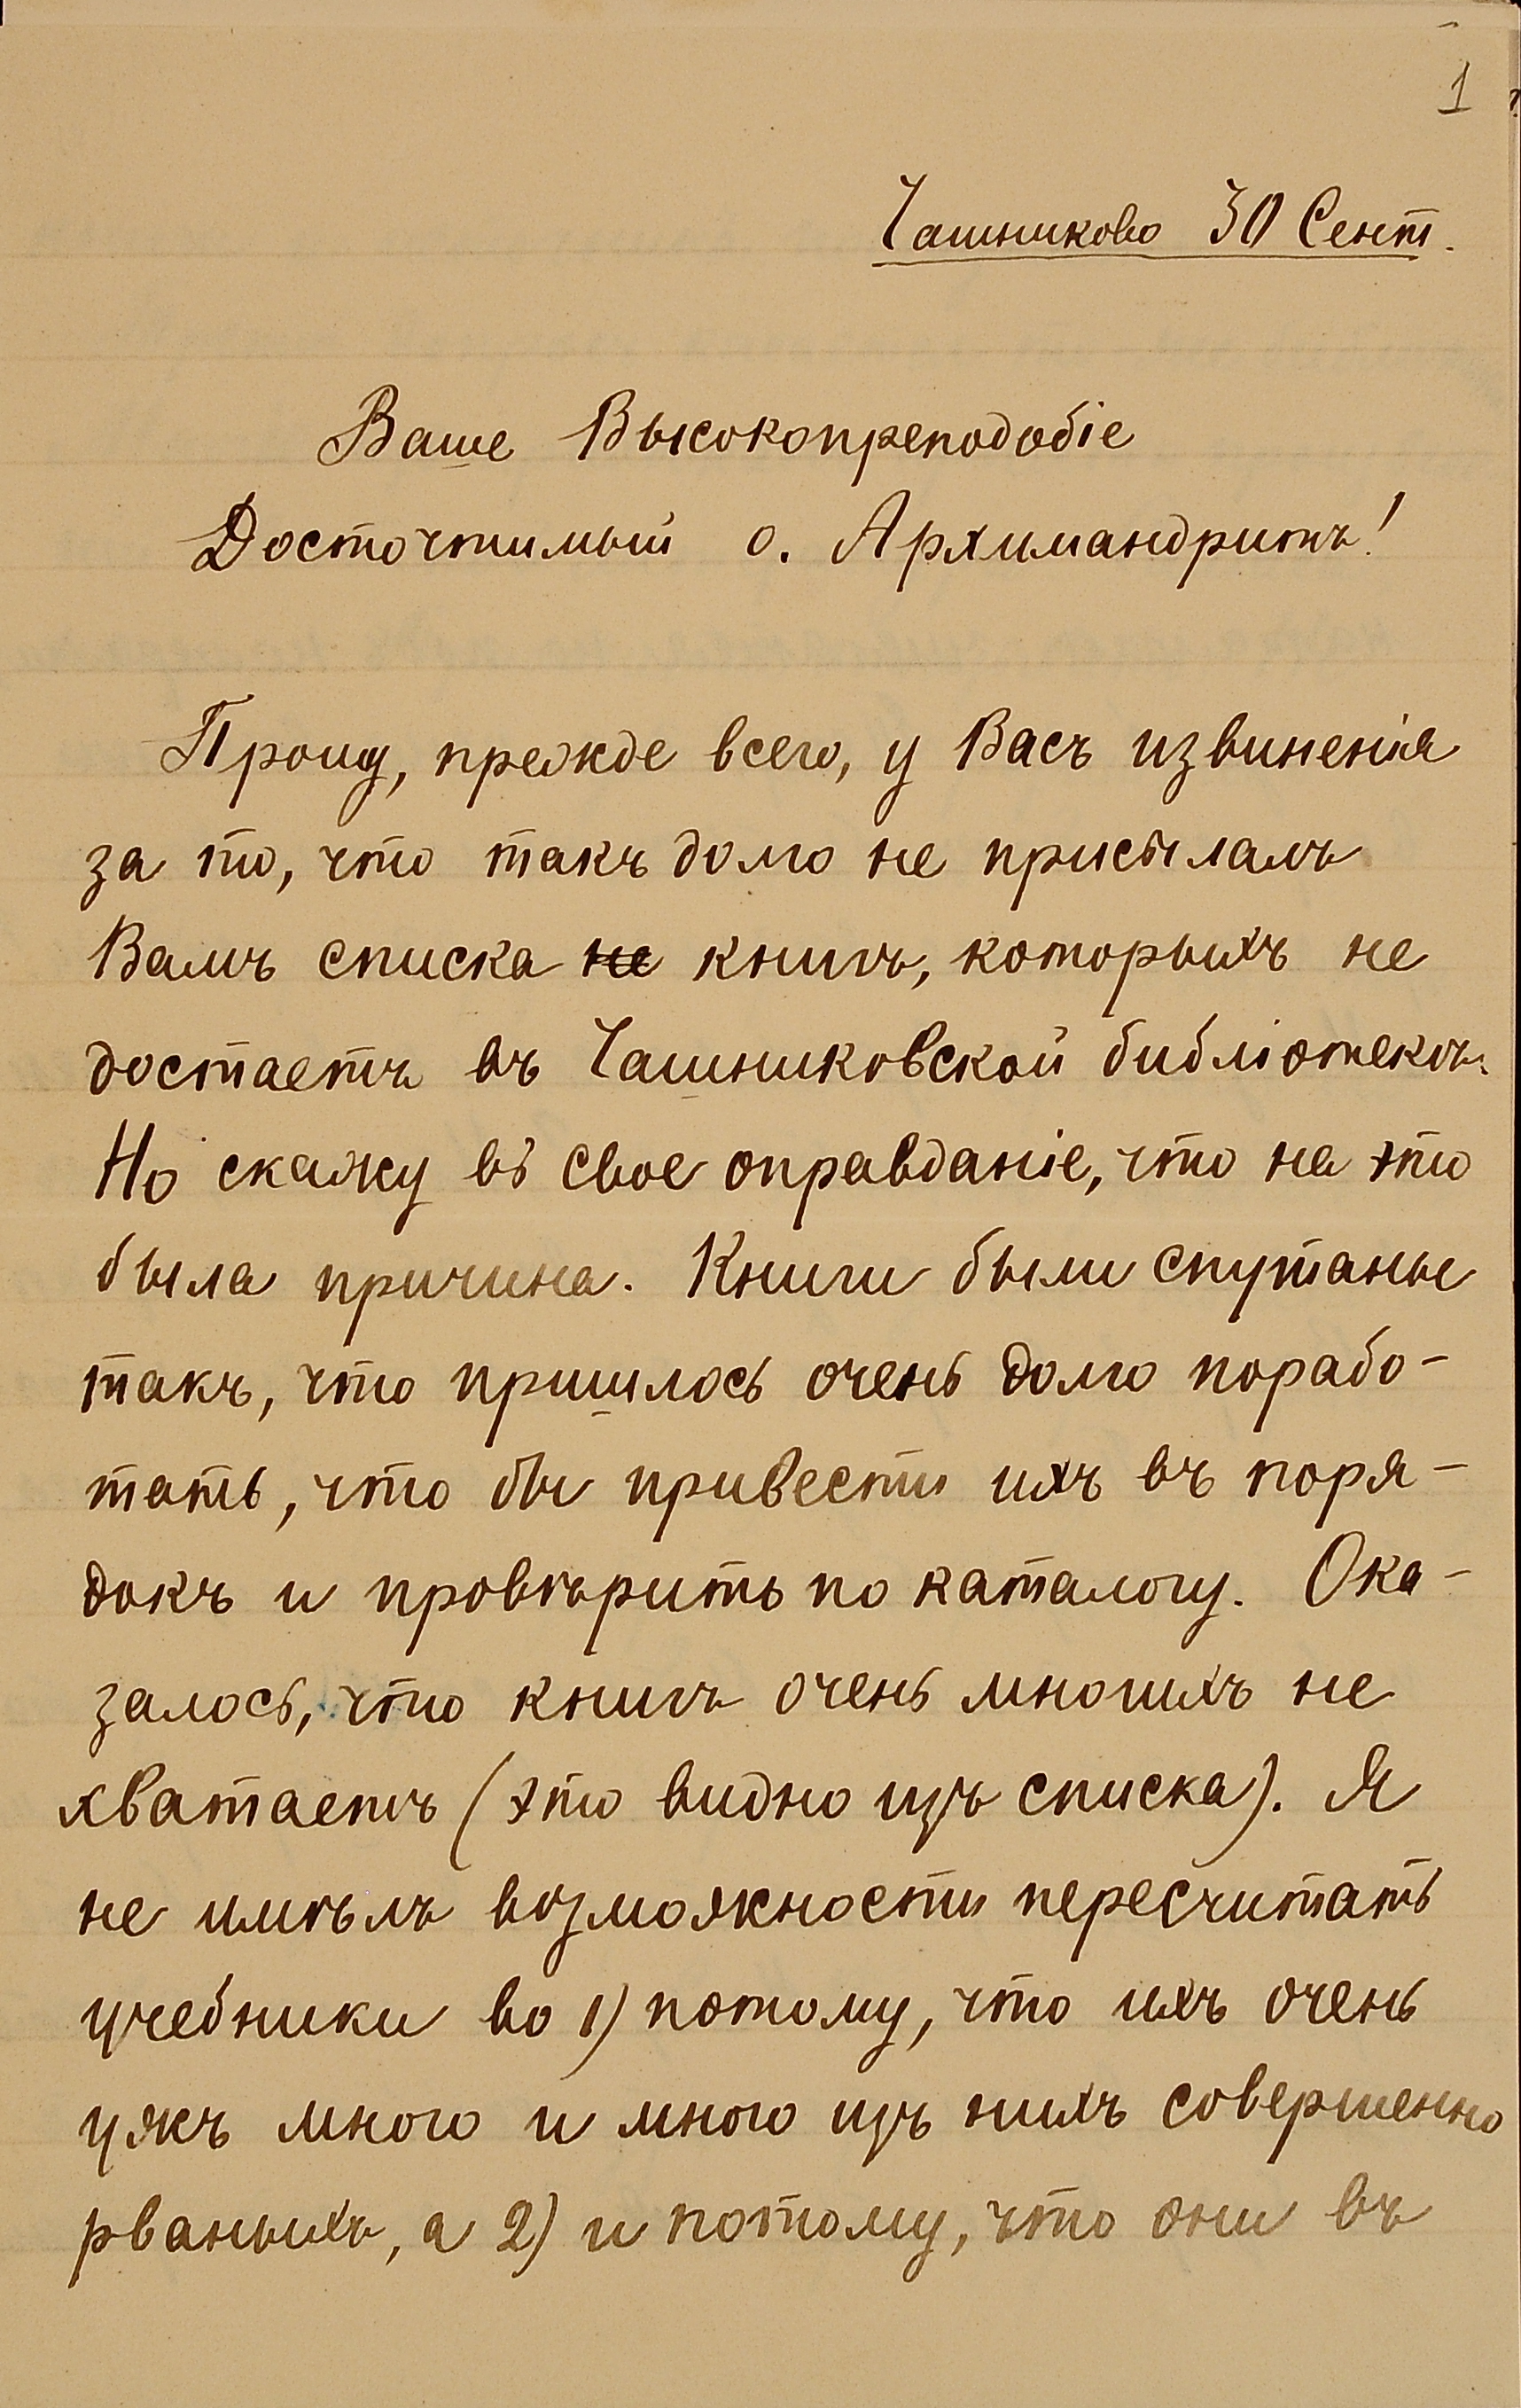 1
Чашниково 30 Сент.
Ваше Высокопреподобіе
Досточтимый о. Архимандритъ!
Прошу, прежде всего, у Васъ извиненія
за то, что такъ долго не присылалъ
Вамъ списка не книгъ, которыхъ не
достаетъ въ Чашниковской библіотекѣ.
Но скажу въ свое оправданіе, что на это
была причина. Книги были спутаны
такъ, что пришлось очень долго порабо-
тать, что бы привести ихъ въ поря-
докъ и провѣрить по каталогу. Ока-
залось, что книгъ очень многихъ не
хватаетъ (это видно изъ списка). Я
не имѣлъ возможности пересчитать
учебники во 1) потому, что ихъ очень
ужъ много и много изъ нихъ совершенно
рваныхъ, а 2) и потому, что они въ